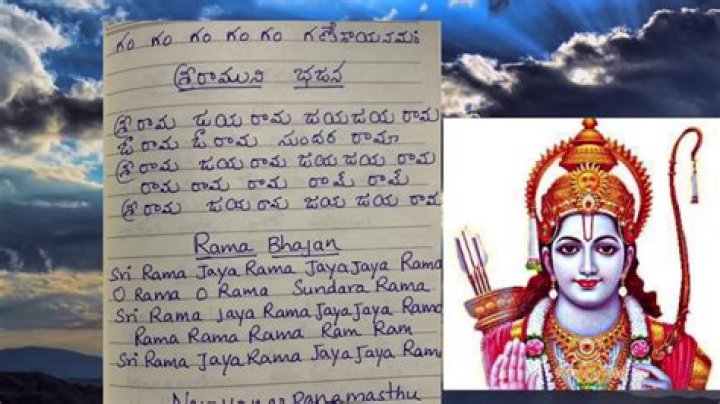 గం గం గం గం గం గణేశాయనమః
శ్రీరాముని భజన
శ్రీ రామ జయ రామ జయజయ రామ
ఓ రామ ఓ రామ సుందర రామా
శ్రీ రామ జయ రామ జయ జయ రామ
రామ రామ రామ రామ్ రామ్
శ్రీ రామ జయ రామ జయ జయ రామ
Rama Bhajan
Sri Rama Jaya Rama Jaya Jaya Rama
O Rama O Rama Sundara Rama
Sri Rama Jaya Rama Jaya Jaya Rama
Rama Rama Rama Ram Ram
Sri Rama Jaya Rama Jaya Jaya Rama